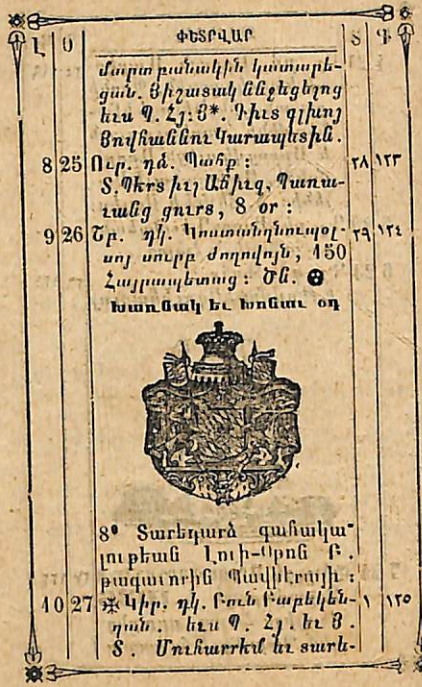 Լ Օ ՓԵՏՐՎԱՐ Տ
մարտ բանակին կատարե-
ցան. Յիշատակ ննջեցելոց
եւս Պ. Հյ: Յ*. Գիւտ գլխոյ
Յովհաննու Կարապետին.
8 25 Ուր. դձ. Պահք : ٢٨ ١٢٣
Տ. իւչ Պառա-
ւանց ցուրտ, 8 օր :
9 26 Շբ. դկ. Կոստանդնուպօլ- ٢٩ ١٢٤
սոյ սուրբ Ժողովոյն, 150
Հայրապետաց : Ծն.
խառնակ եւ խոնաւ օդ
8° Տարեդարձ գահակա-
լութեան Լուի-Օթոն Բ.
թագաւորին Պավիէրայի :
10 27 Կիր. դկ. Բուն Բարեկեն- ١ ١٢٥
դան. եւս Պ. Հյ. եւ Յ.
Տ. Մուհարրէմ եւ տարե-